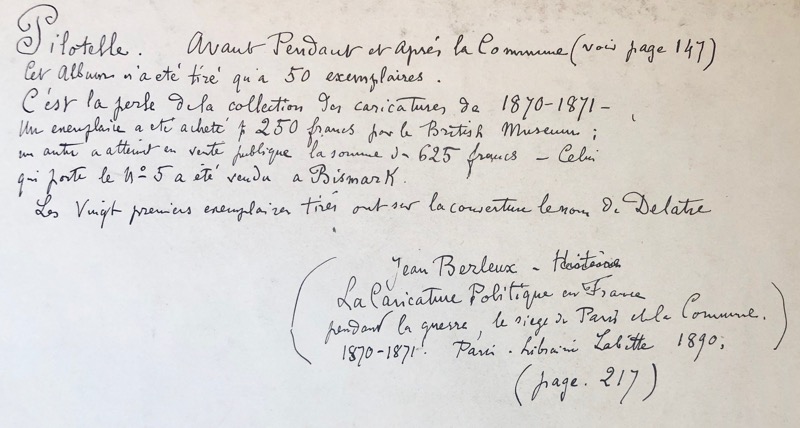 Pilotelle. Avant Pendant et après la Commune (voir page 147)
Cet Album n'a été tiré qu'a 50 exemplaires.
C'est la perle de la collection des caricatures de 1870-1871 -
Un exemplaire a été acheté p 250 francs par le British Museum;
un autre a atteint en vente publique la somme de 625 francs - Celui
qui porte le No 5 a été vendu a Bismark.
Les Vingt premiers exemplaires tirés ont sur la couverture le nom de Delatre
(Jean Berleux -
La Caricature Politique en France
pendant la guerre, le siege de Paris et la Commune.
1870-1871. Paris. Librairie Labitte 1890;)
(page. 217)